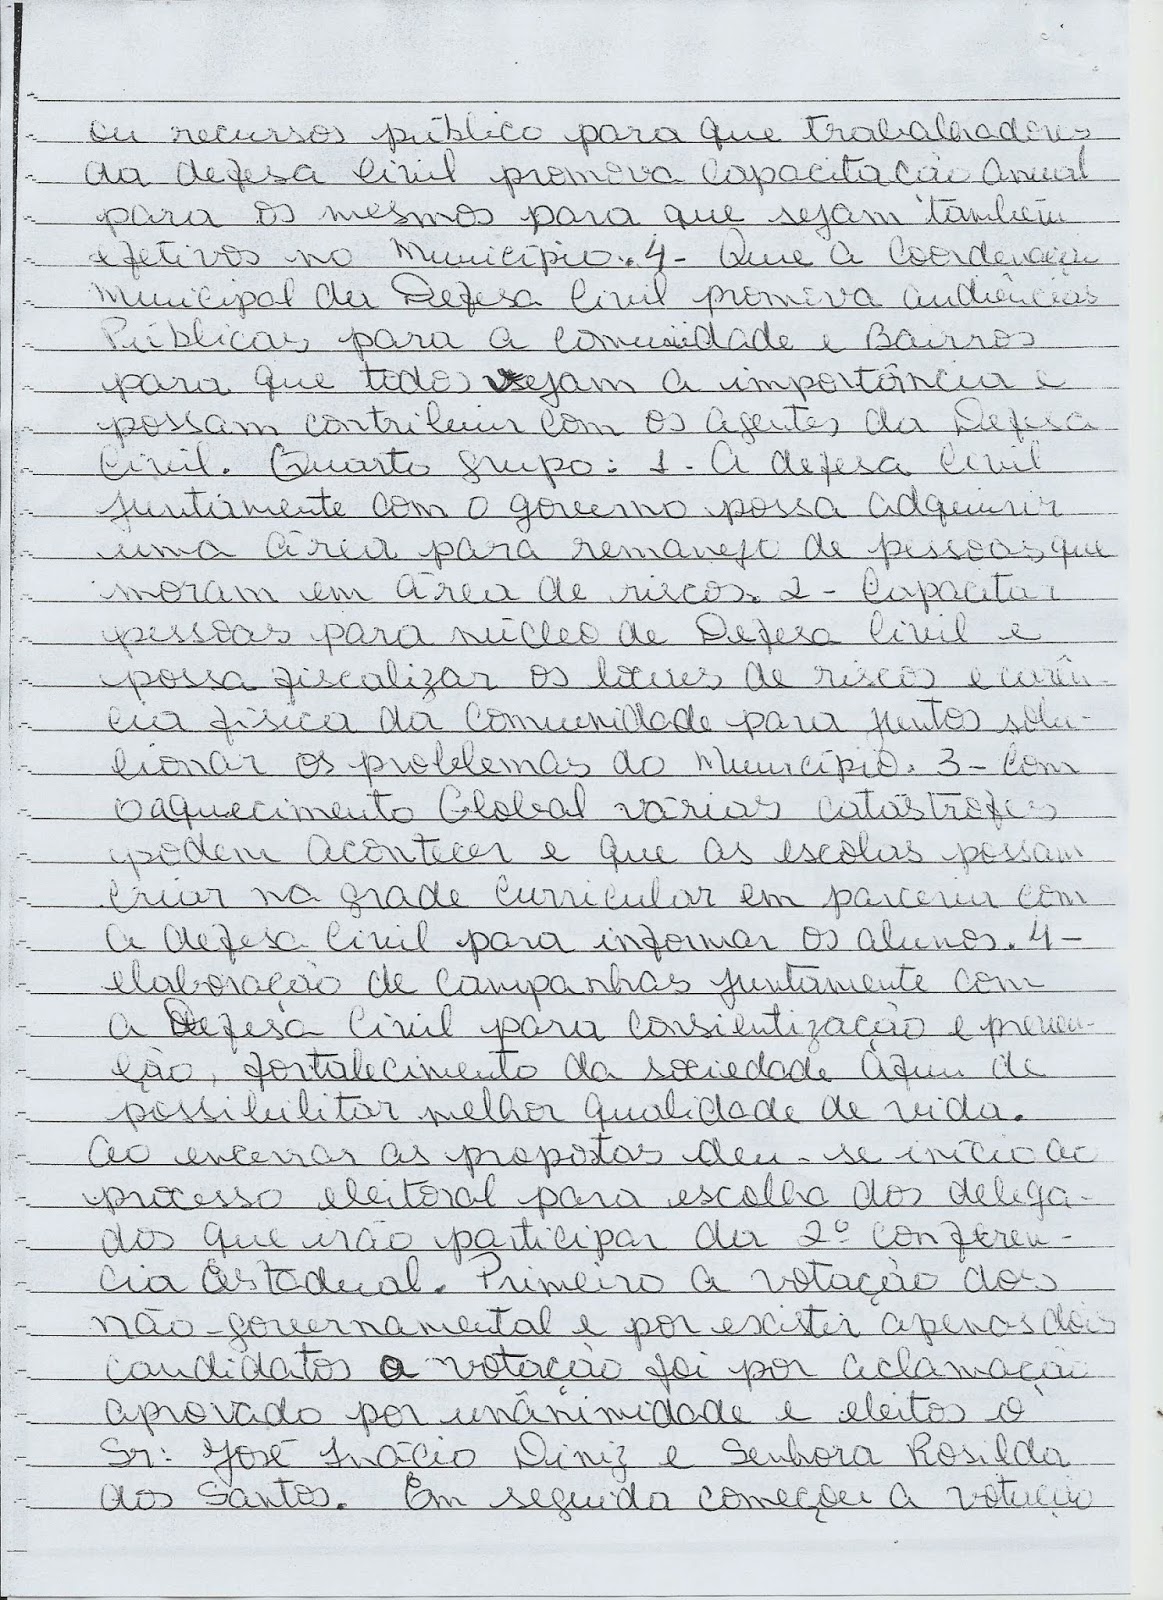 ou recursos público para que trabalhadores
da defesa Civil promova Capacitação Anual
para os mesmos para que sejam também
efetivos no Município. 4- Que a Coordenação
Municipal da Defesa Civil promova audiências
Públicas para a Comunidade e Bairros
para que todos vejam a importância e
possam contribuir com os agentes da Defesa
Civil. Quarto grupo: 1- A defesa Civil
juntamente com o governo possa adquirir
uma área para remanejo de pessoas que
moram em área de riscos. 2- Capacitar
pessoas para núcleo de Defesa Civil e
possa fiscalizar os locais de riscos e carên-
cia física da Comunidade para juntos solu-
cionar os problemas do Município. 3- Com
o aquecimento Global várias catástrofes
podem acontecer e que as escolas possam
criar na grade curricular em parceria com
a defesa Civil para informar os alunos. 4-
elaboração de campanhas juntamente com
a Defesa Civil para consientização e preven-
ção, fortalecimento da sociedade afim de
possibilitar melhor qualidade de vida.
Ao encerrar as propostas deu-se início ao
processo eleitoral para escolha dos delega-
dos que irão participar da 2º conferen-
cia Estadual. Primeiro a votação dos
não-governamental e por existir apenas dois
candidatos a votação foi por aclamação
aprovado por unânimidade e eleitos o
Sr: José Inácio Diniz e Senhora Rosilda
dos Santos. Em seguida começou a votação